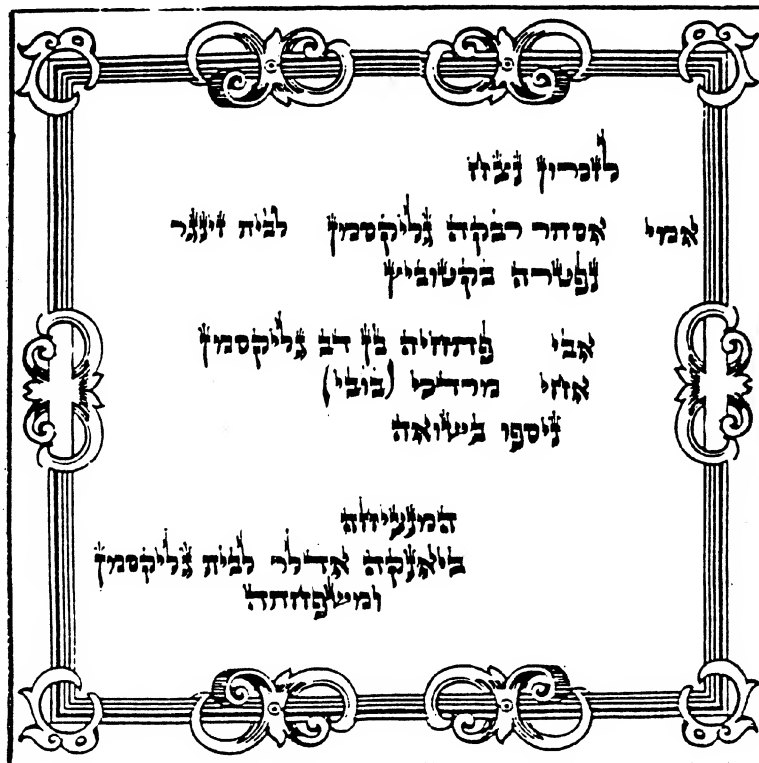 לזכרון נצח
אמי אסתר רבקה גליקסמן לבית זינגר
נפטרה בקטוביץ
אבי פתחיה בן דב גליקסמן
אחי מרדכי (בובי)
ניספו בשואה
המנציחה
ביאנקה אדלר לבית גליקסמן
ומשפחתה